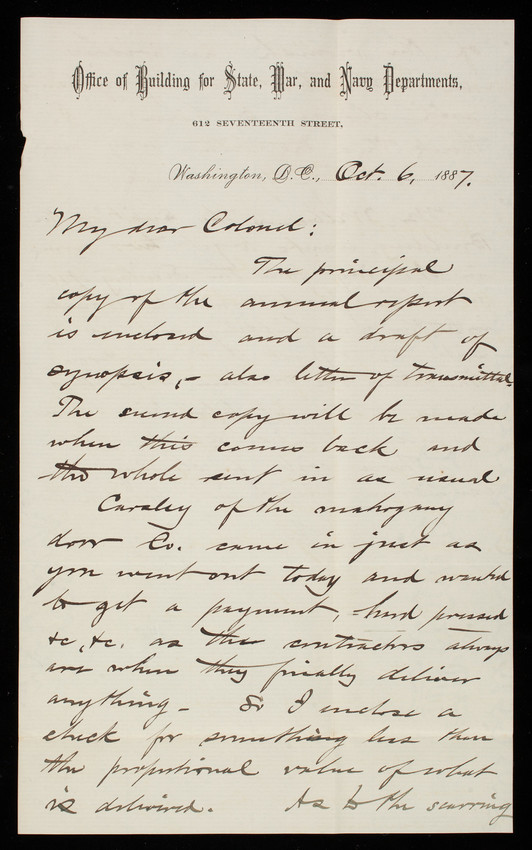 Office of Building for State, War, and Navy Departments,
612 SEVENTEENTH STREET,
Washington, D.C., Oct. 6, 1887.
My dear Colonel:
The principal
copy of the annual report
is enclosed and a draft of
synopsis, - also letter of transmittal.
The second copy will be made
when this comes back and
the whole sent in as usual
Carsley of the mahogany
door Co. came in just as
you went out today and wanted
to get a payment, - hard pressed
&c, &c. as the contractors always
are when they finally deliver
anything - So I enclose a
check for something less than
the proportional value of what
is delivered. As to the